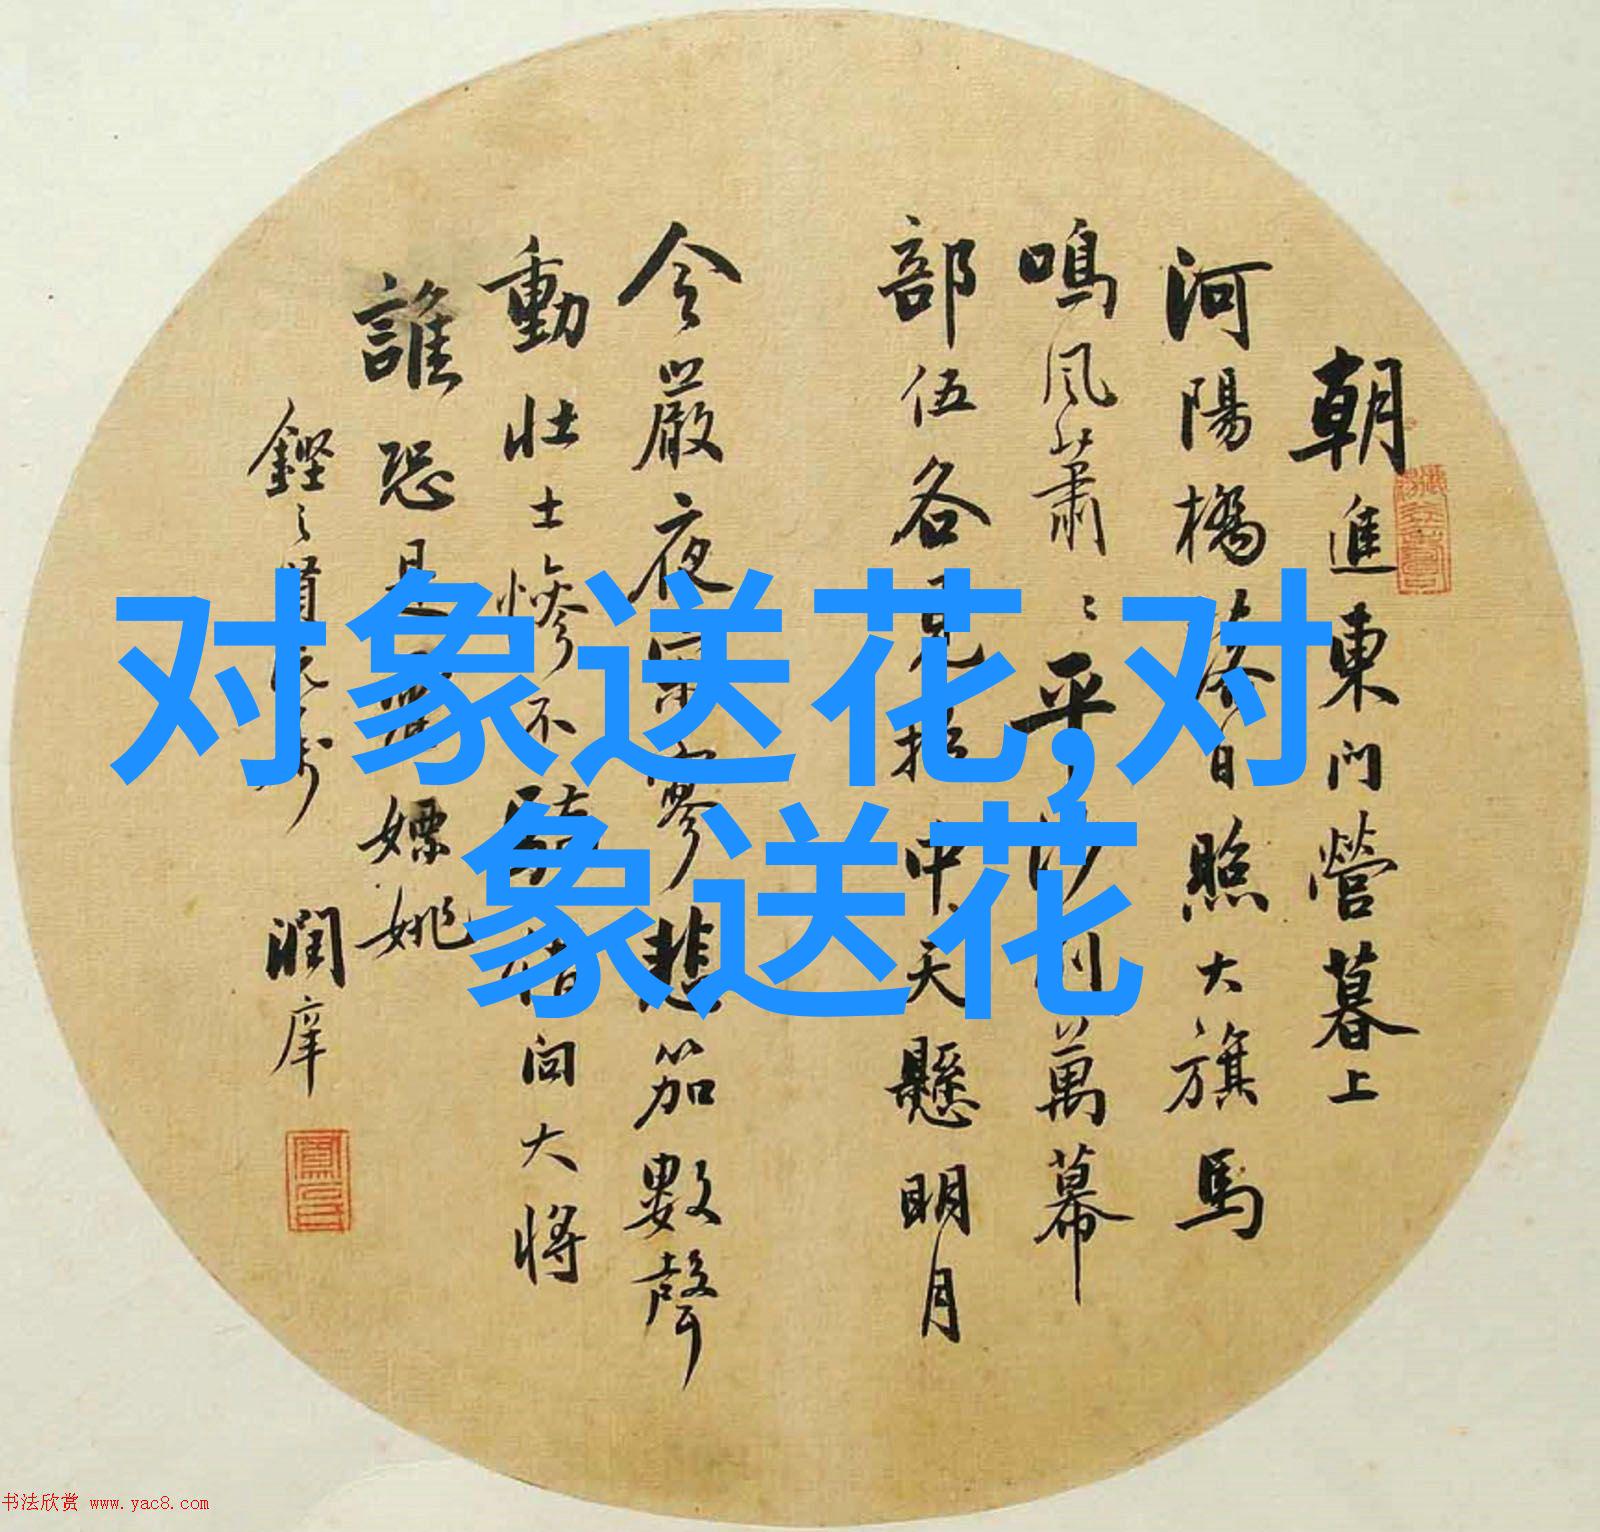 朝進東門營暮上
河陽橋落日照大旗馬
鳴風蕭〻平沙列萬幕
部伍各見招中天懸明月
令嚴夜寂寥悲笳數聲
動壯士慘不驕借問大將
誰恐是嫖姚
潤庠
对象送花,对
象送花
书法欣赏 www.yac8.com